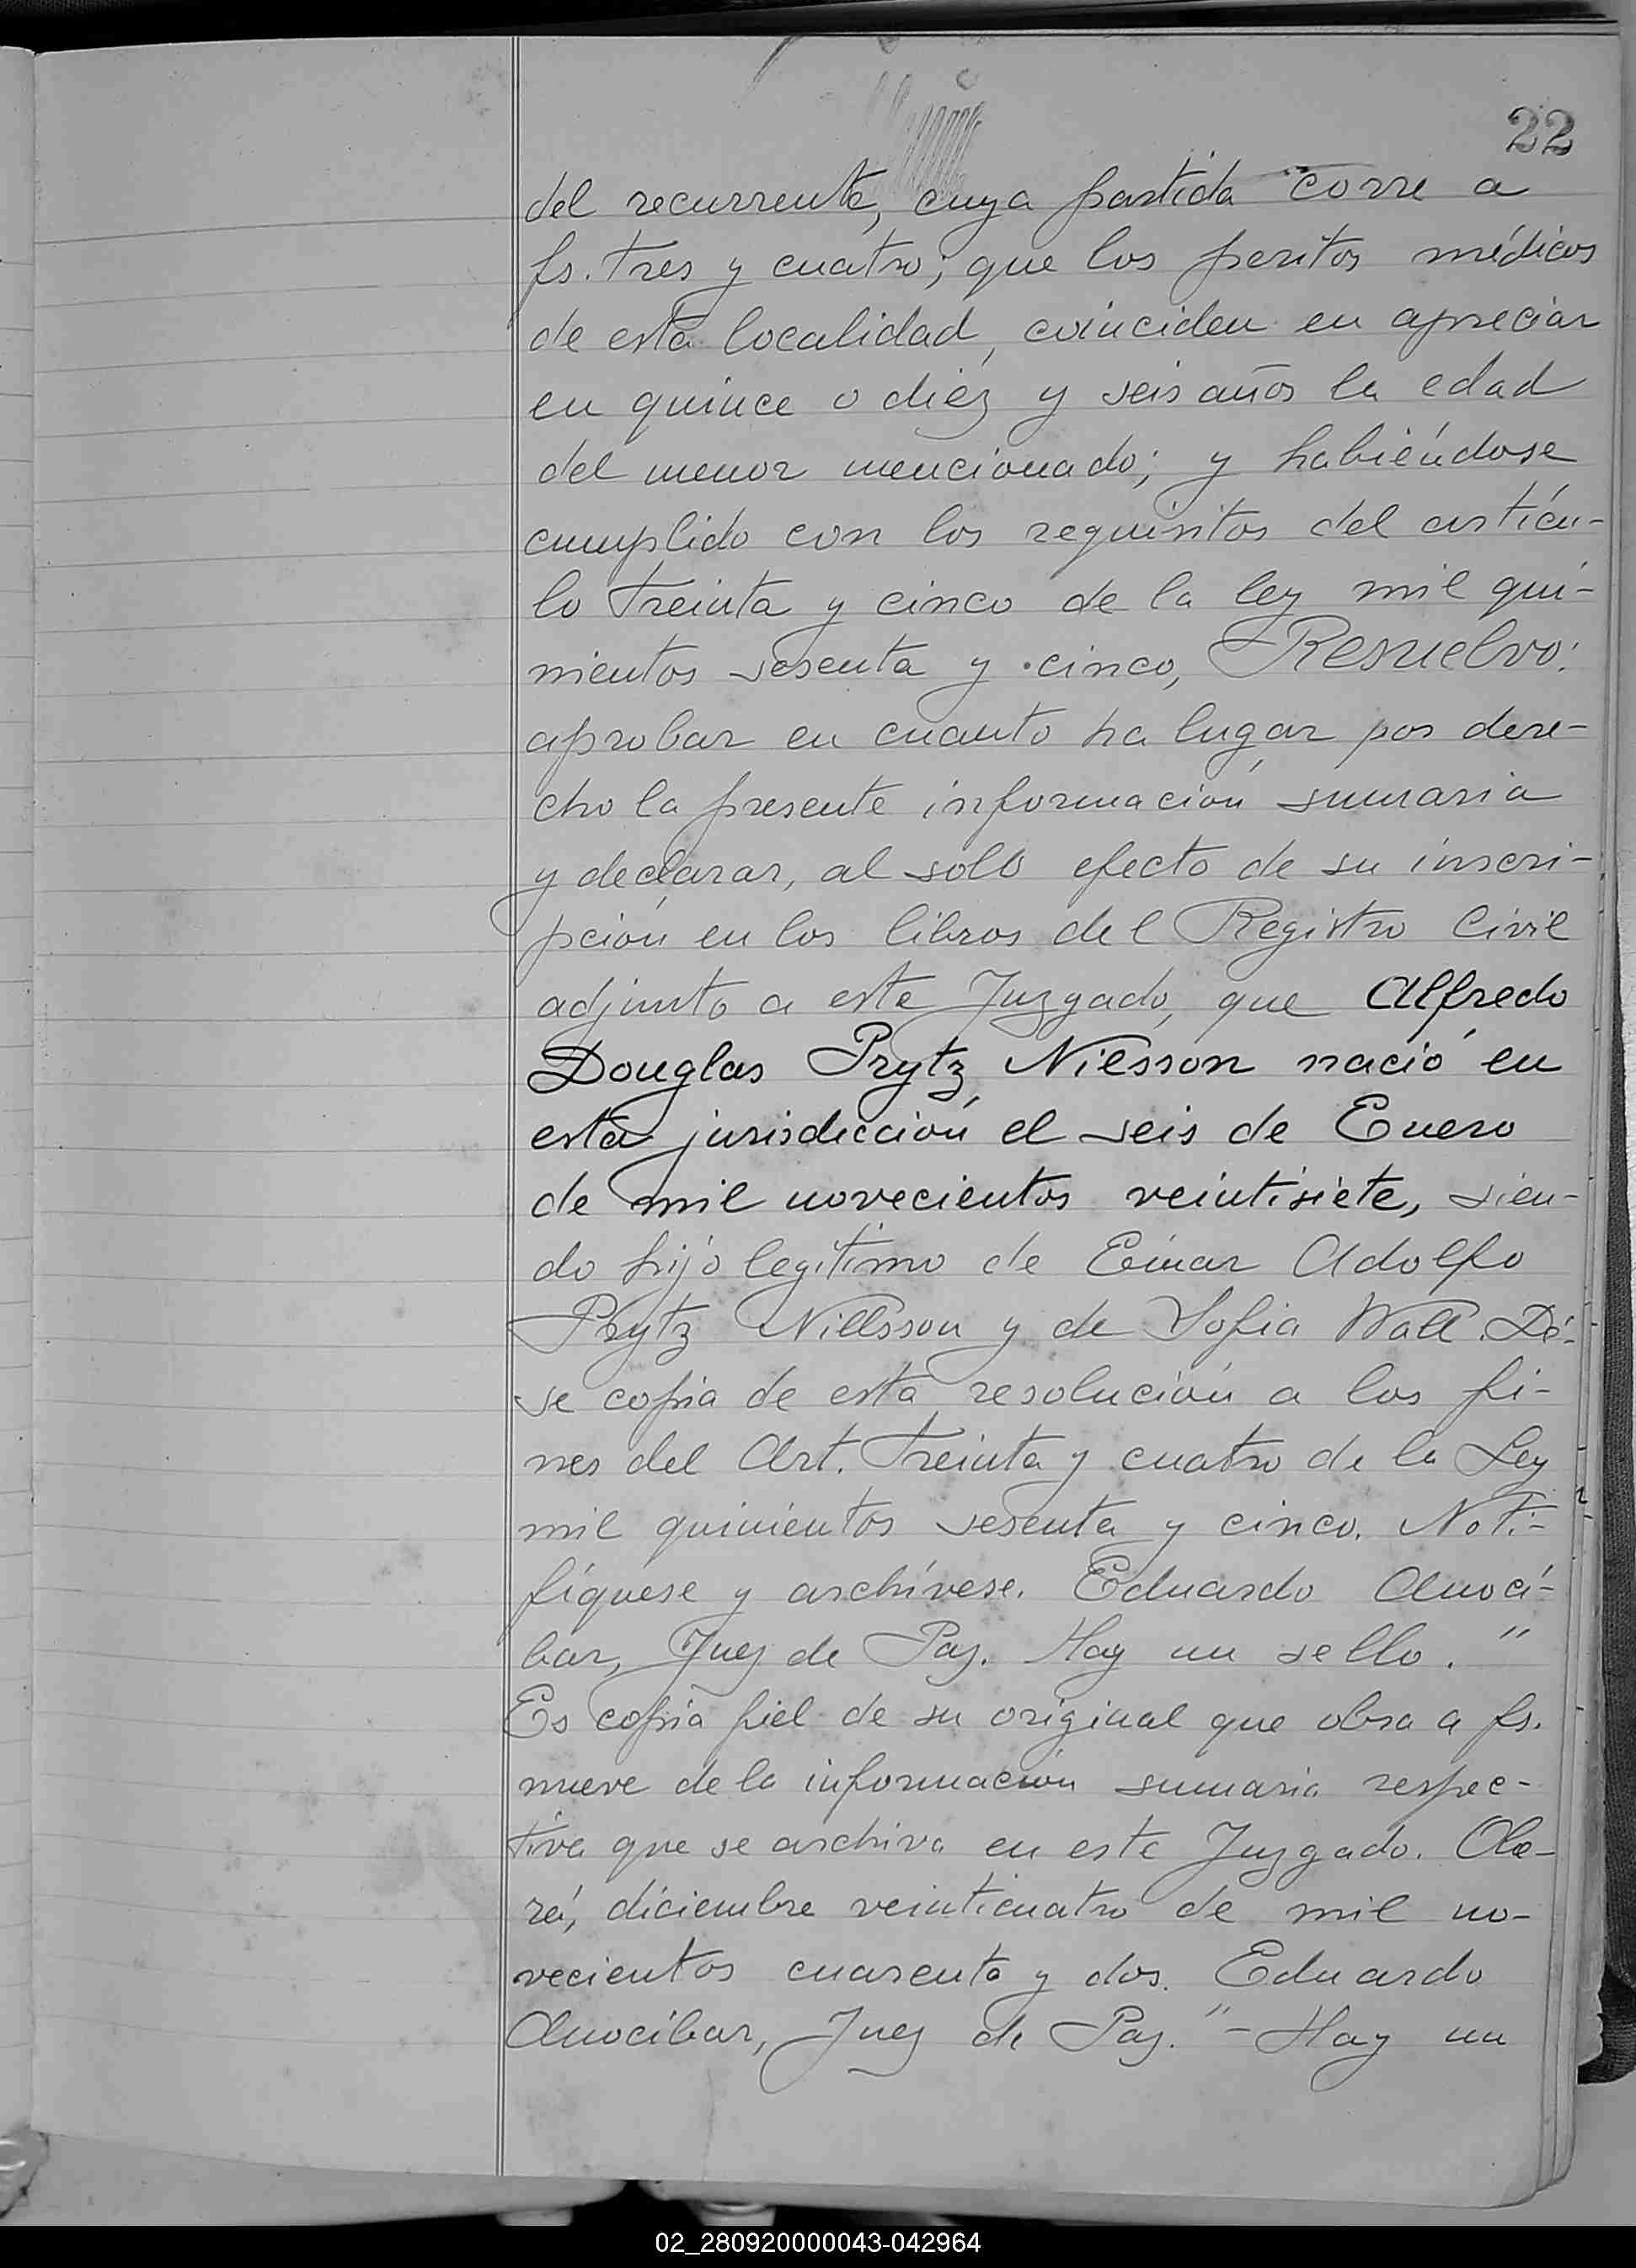 22
del recurrente, cuya partida corre a
fs. tres y cuatro; que los peritos médicos
de esta localidad, coinciden en apreciar
en quince o diez y seis años la edad
del menor mencionado; y habiéndose
cumplido con los requisitos del artícu-
lo treinta y cinco de la ley mil qui-
nientos sesenta y cinco, Resuelvo:
aprobar en cuanto ha lugar por dere-
cho la presente información sumaria
y declarar, al solo efecto de su inscri-
pción en los libros del Registro Civil
adjunto a este Juzgado, que Alfredo
Douglas Prytz Nilsson nació en
esta jurisdicción el seis de Enero
de mil novecientos veintisiete, sien-
do hijo legítimo de Einar Adolfo
Prytz Nillsson y de Sofia Wall. Dé-
se copia de esta resolución a los fi-
nes del Art. treinta y cuatro de la Ley
mil quinientos sesenta y cinco. Noti-
fíquese y archívese. Eduardo Anocí-
bar, Juez de Paz. Hay un sello."
Es copia fiel de su original que obra a fs.
nueve de la información sumaria respec-
tiva que se archiva en este Juzgado. Obe-
rá, diciembre veinticuatro de mil no-
vecientos cuarenta y dos. Eduardo
Anocíbar, Juez de Paz."- Hay un
02_280920000043-042964